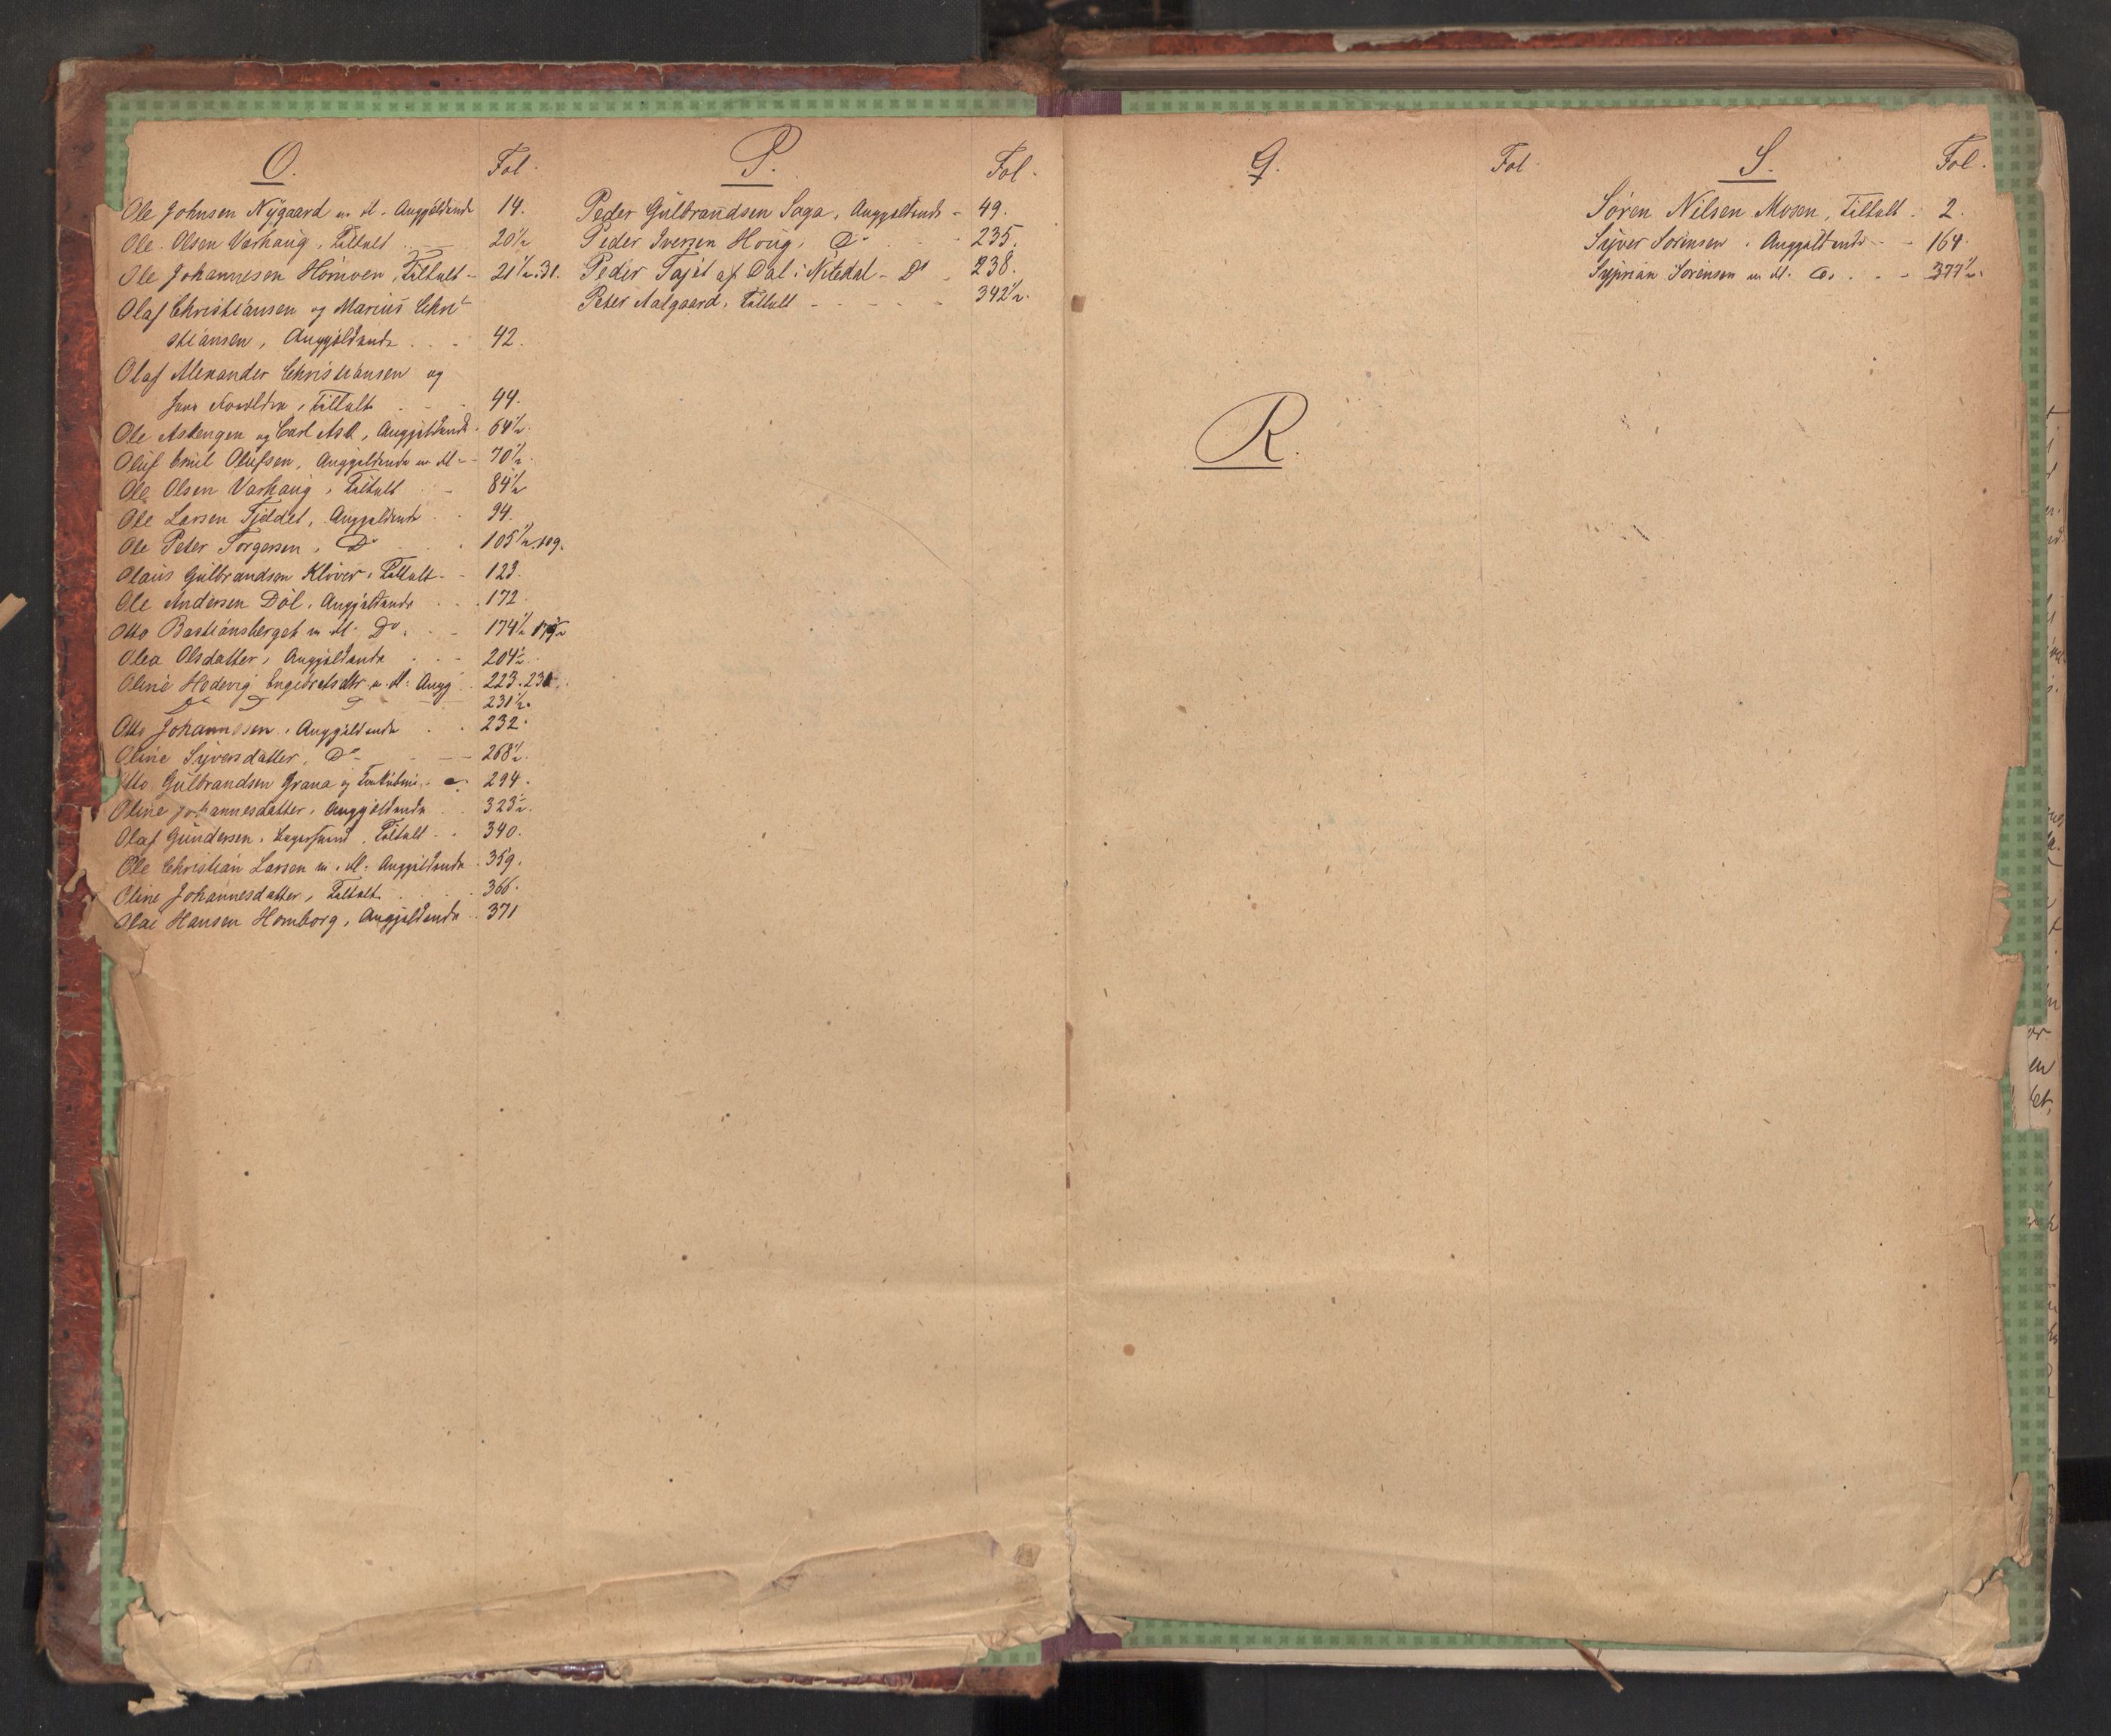 O. Fol.
Ole Johnsen Nygaard m. fl. Angjældende 14.
Ole Olsen Varhaug, Tiltalt 20 1/2
Ole Johannesen Hømoen, Tiltalt 21 1/2. 31.
Olaf Christiansen og Marius Chri-
stiansen, Angjældende 42.
Olaf Alexander Christiansen og
Tiltalte 44.
Ole Askengen og Carl Ask, Angjældende 64 1/2.
Oluf Emil Olufsen, Angjældende m. fl. 70 1/2.
Ole Olsen Varhaug, Tiltalt 84 1/2
Ole Larsen Tjeldet, Angjældende 94.
Ole Peter Torgersen, Do 105 1/2. 109.
Olaus Gulbrandsen Kløver, Tiltalt 123.
Ole Andersen Døl, Angjældende 172
Otto Bastiansberget m fl. Do. 174 1/2
Olea Olsdatter, Angjældende 204 1/2.
Oline Hedevig Engebretsdtr. m. fl. Angj. 223.
231 1/2.
Otto Johannesen, Angjældende 232.
Oline Syversdatter, Do 268 1/2.
Otto Gulbrandsen Grana og 294.
Oline Johannesdatter, Angjældende 323 1/2.
Olaf Gundersen, Tiltalt 340.
Ole Christian Larsen m. fl. Angjældende 359.
Oline Johannesdatter, Tiltalt 366.
Olai Hansen Homborg, Angjældende 371
P. Fol.
Peder Gulbrandsen Saga, Angjældende 49.
Peder Iversen Houg, Do 235.
Peder Tajet af Dal i Nitedal Do 238.
Peter Aalgaard, Tiltalt 342 1/2.
Q. Fol
R.
S. Fol.
Søren Nilsen Mosen, Tiltalt 2.
Syver Sørensen, Angjældende 164.
Syprian Sørensen m fl. Do. 377 1/2.